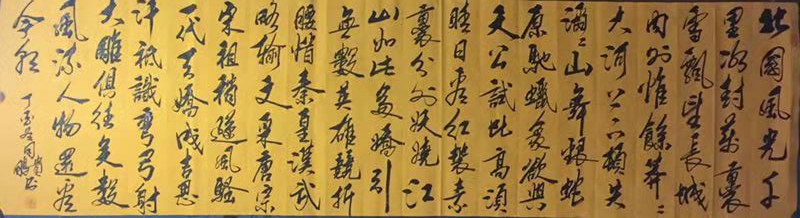 北國風光千
里冰封萬裏
雪飄望長城
内外惟餘莽〻
大河上下頓失
滔〻山舞銀蛇
原馳蠟象欲與
天公試比高須
晴日看紅裝素
裹分外妖嬈江
山如此多嬌引
無數英雄競折
腰惜秦皇漢武
略輸文采唐宗
宋祖稍遜風騷
一代天嬌成吉思
汗祇識彎弓射
大雕俱往矣數
風流人物還看
今朝
丁酉冬周鵬